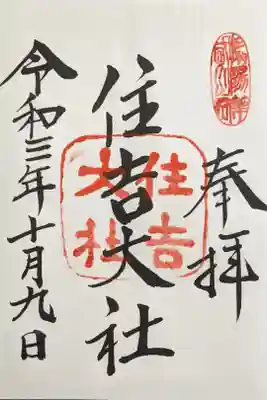 奉拝
住吉大社
住吉
大社
令和三年十月九日